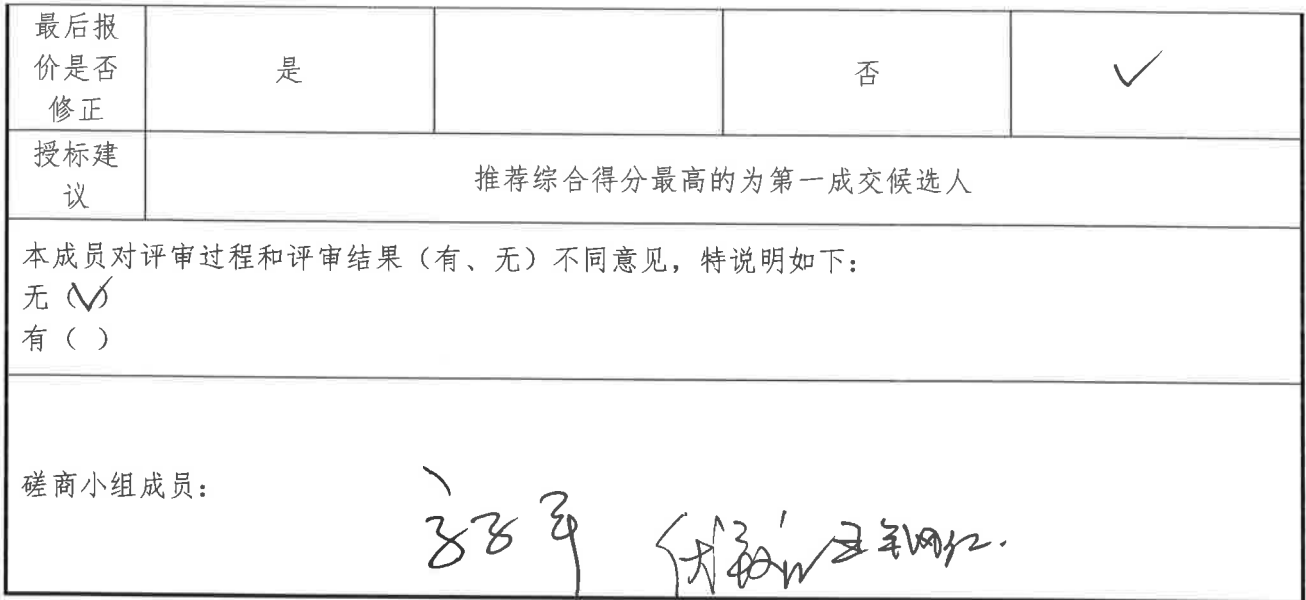 最后报
价是否
修正
是
否
✓
授标建
议
推荐综合得分最高的为第一成交候选人
本成员对评审过程和评审结果（有、无）不同意见，特说明如下：
无（✓）
有（ ）
磋商小组成员：